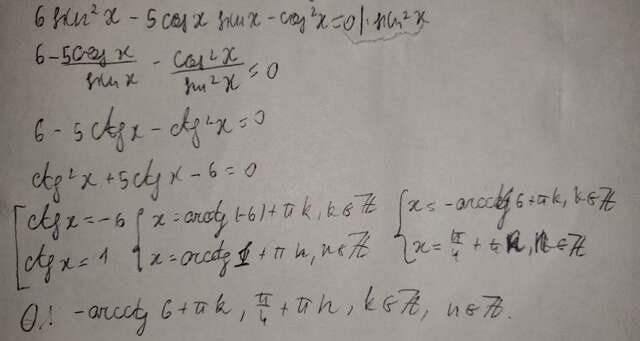 6 sin²x - 5 cos x sin x - cos²x = 0 |: sin²x
6 - 5cos x / sin x - cos²x / sin²x = 0
6 - 5 ctg x - ctg²x = 0
ctg²x + 5 ctg x - 6 = 0
[ ctg x = -6 { x = arcctg (-6) + πk, k ∈ Z { x = -arcctg 6 + πk, k ∈ Z
ctg x = 1 x = arcctg 1 + πn, n ∈ Z x = π/4 + πn, n ∈ Z
O.: -arcctg 6 + πk, π/4 + πn, k ∈ Z, n ∈ Z.